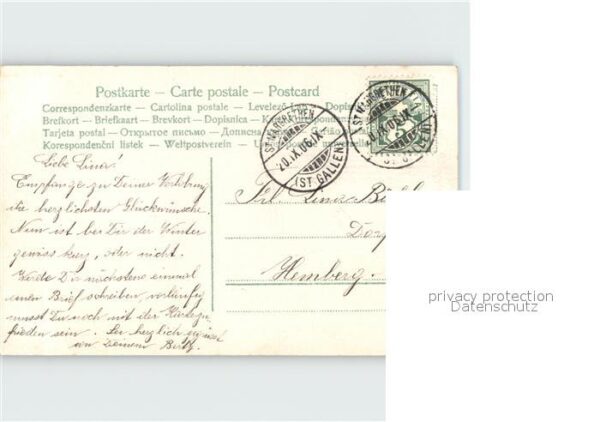 Postkarte — Carte postale — Postcard
Correspondenzkarte — Cartolina postale — Levelező
Brefkort — Briefkaart — Brevkort — Dopisnica —
Tarjeta postal — Открытое письмо — Дописна
Korespondenční lístek — Weltpostverein —
ST. MARGRETHEN
20.IX.06.IX
(ST. GALLEN)
ST. MARGRETHEN
IX
(ST. GALLEN)
Liebe Lina!
Empfange zu Deiner Verlobung
die herzlichsten Glückwünsche.
Nun ist bei Dir der Winter
gewiss kurz, oder nicht.
Werde Dir nächstens einmal
einen Brief schreiben, vorläufig
musst Du noch mit der Karte zu-
frieden sein. Sei herzlich
von Deinem
Frl. Lina
Dorf
Hemberg.
privacy protection
Datenschutz